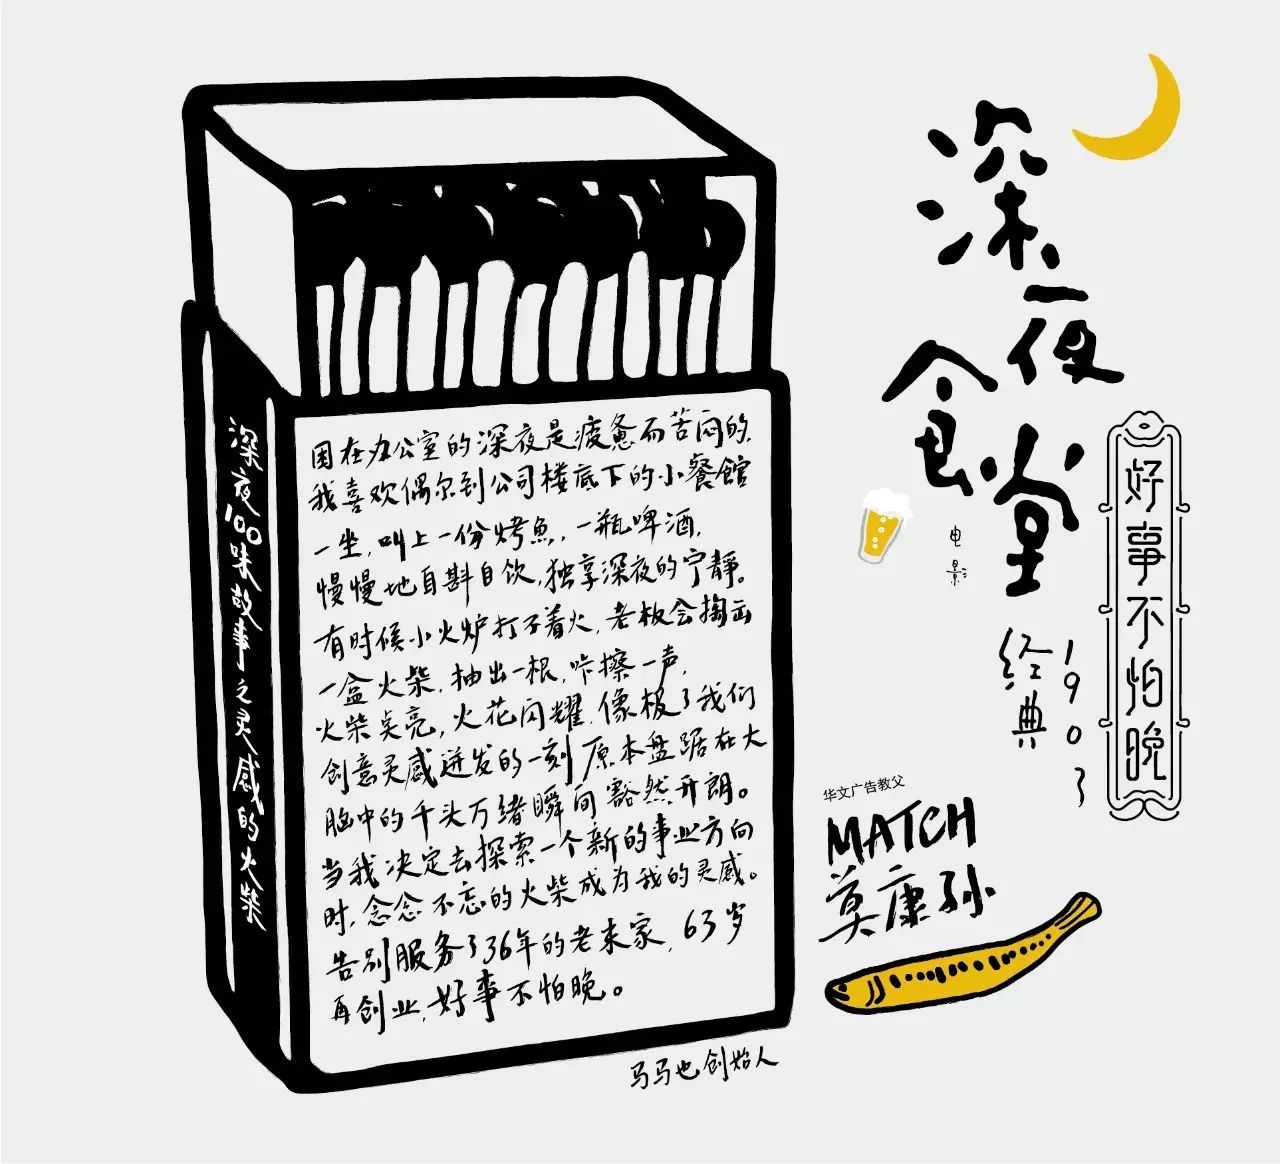 深夜100味故事之灵感的火柴
困在办公室的深夜是疲惫而苦闷的,
我喜欢偶尔到公司楼底下的小餐館
一坐,叫上一份烤魚,一瓶啤酒,
慢慢地自斟自饮,独享深夜的宁靜。
有时候小火炉打不着火,老板会掏出
一盒火柴,抽出一根,咔擦一声,
火柴点亮,火花闪耀,像极了我们
创意灵感迸发的一刻原本盘踞在大
脑中的千头万绪瞬间豁然开朗。
当我决定去探索一个新的事业方向
时,念念不忘的火柴成为我的灵感。
告别服务了36年的老东家,63岁
再创业,好事不怕晚。
马马也创始人
深夜
食堂
电影
好事不怕晚
1903
经典
华文广告教父
MATCH
莫康孙